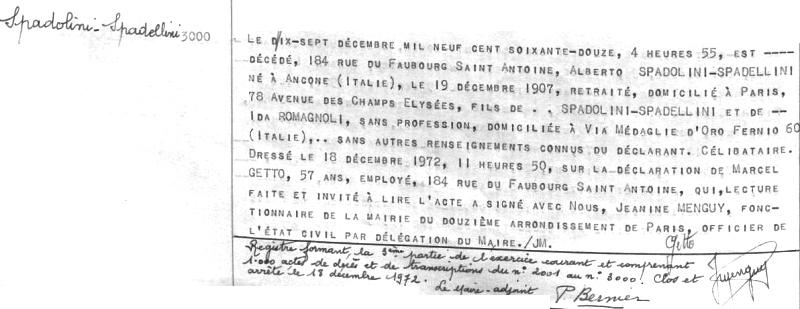 Spadolini-Spadellini 3000
LE DIX-SEPT DÉCEMBRE MIL NEUF CENT SOIXANTE-DOUZE, 4 HEURES 55, EST ----
DÉCÉDÉ, 184 RUE DU FAUBOURG SAINT ANTOINE, ALBERTO SPADOLINI-SPADELLINI
NÉ À ANCONE (ITALIE), LE 19 DÉCEMBRE 1907, RETRAITÉ, DOMICILIÉ À PARIS,
78 AVENUE DES CHAMPS ELYSÉES, FILS DE . . SPADOLINI-SPADELLINI ET DE --
IDA ROMAGNOLI, SANS PROFESSION, DOMICILIÉE À VIA MÉDAGLIE D'ORO FERNIO 60
(ITALIE),.. SANS AUTRES RENSEIGNEMENTS CONNUS DU DÉCLARANT. CÉLIBATAIRE.
DRESSÉ LE 18 DÉCEMBRE 1972, 11 HEURES 50, SUR LA DÉCLARATION DE MARCEL
GETTO, 57 ANS, EMPLOYÉ, 184 RUE DU FAUBOURG SAINT ANTOINE, QUI,LECTURE
FAITE ET INVITÉ À LIRE L'ACTE A SIGNÉ AVEC NOUS, JEANINE MENGUY, FONC-
TIONNAIRE DE LA MAIRIE DU DOUZIÈME ARRONDISSEMENT DE PARIS, OFFICIER DE
L'ÉTAT CIVIL PAR DÉLÉGATION DU MAIRE./JM.
Registre formant, la 3ème partie de l'exercice courant et comprenant
1.000 actes de décès et de transcriptions du n° 2001 au n° 3000. Clos et
arrêté le 18 décembre 1972.
Le Maire-adjoint P. Bernier